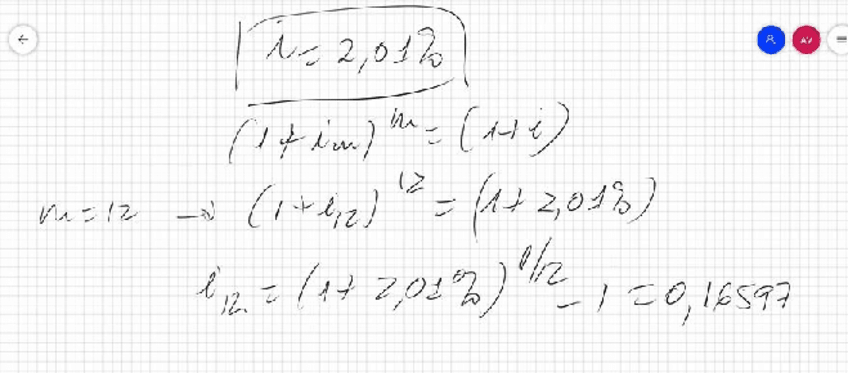 i = 2,01%
(1+i_m)^m = (1+i)
m=12 → (1+i_12)^12 = (1+2,01%)
i_12 = (1+2,01%)^1/12 - 1 = 0,16597